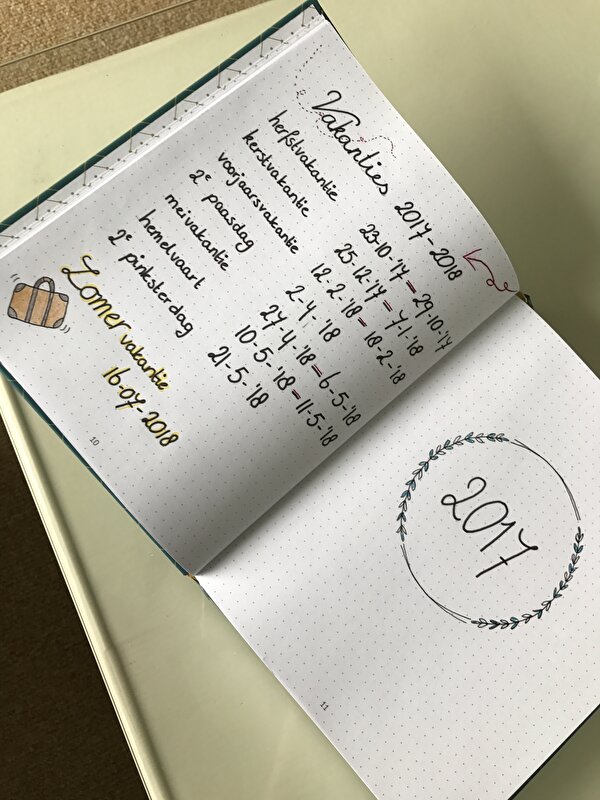 Vakanties 2017-2018
herfstvakantie 23-10-'17 = 29-10-'17
kerstvakantie 25-12-'17 = 7-1-'18
voorjaarsvakantie 12-2-'18 = 18-2-'18
2e paasdag 2-4-'18
meivakantie 27-4-'18 = 6-5-'18
hemelvaart 10-5-'18 = 11-5-'18
2e pinksterdag 21-5-'18
Zomervakantie
16-07-2018
10
2017
11